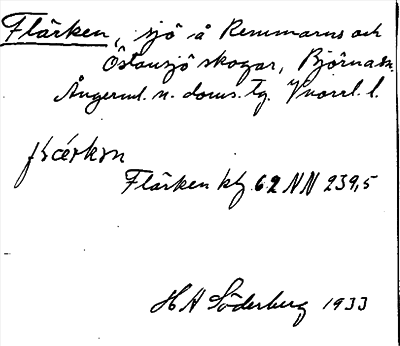 Flärken, sjö å Remmarns och
Östansjö skogar, Björna sn.
Ångerml. n. doms. tg. Vnorrl. l.
Flärken kbg 62 NN 239,5
H A Söderberg 1933